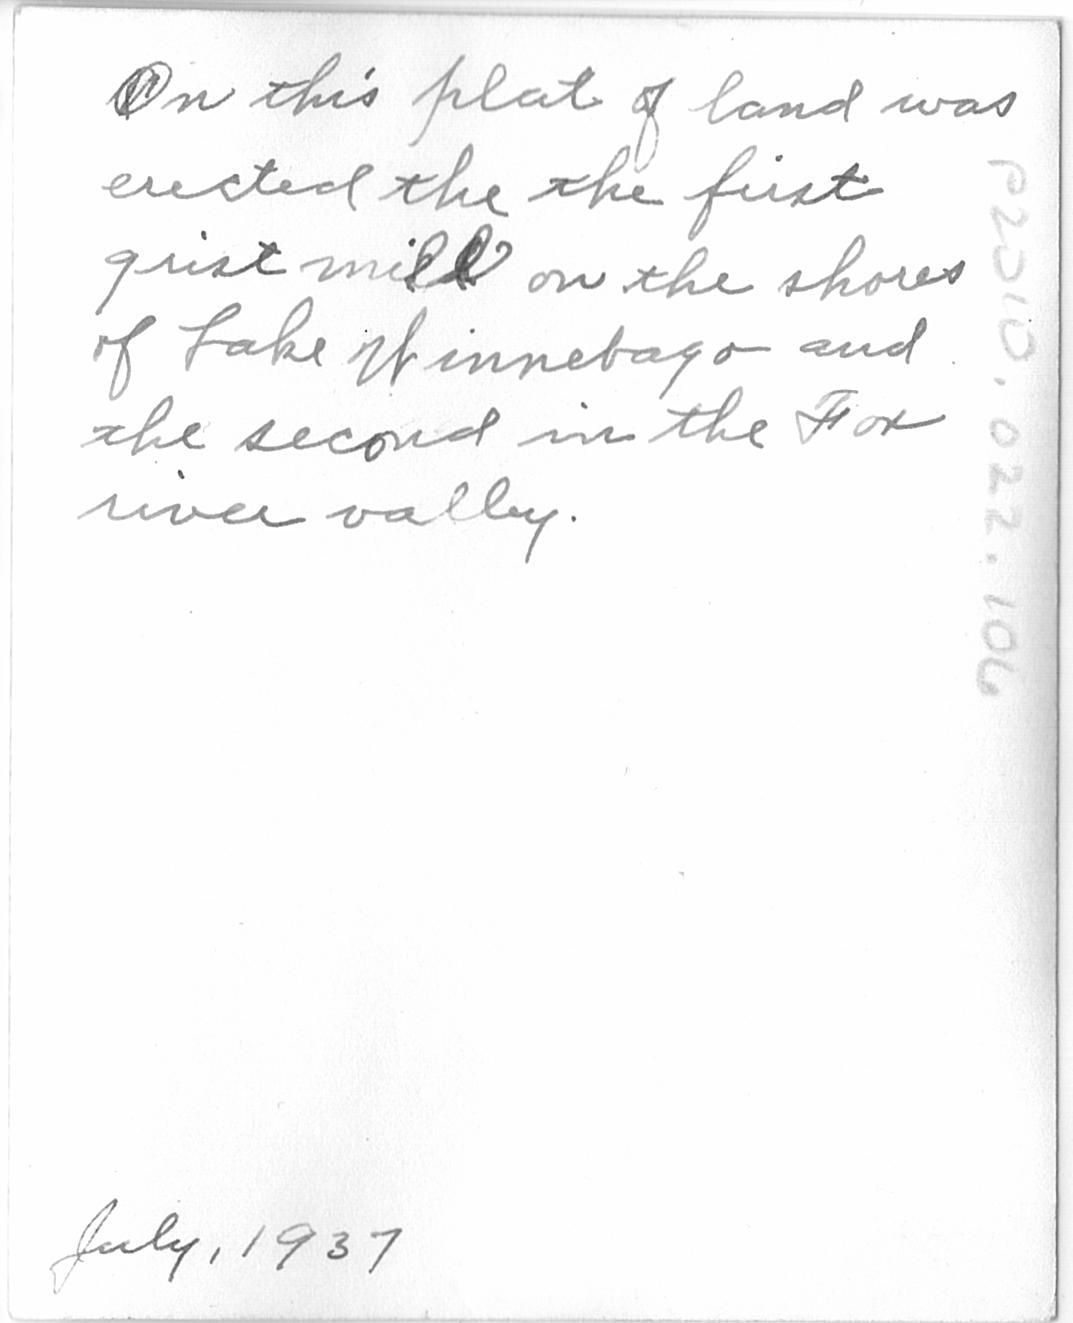 On this plat of land was
erected the the first
grist mill on the shores
of Lake Winnebago and
the second in the Fox
river valley.
July, 1937
P2010.022.106